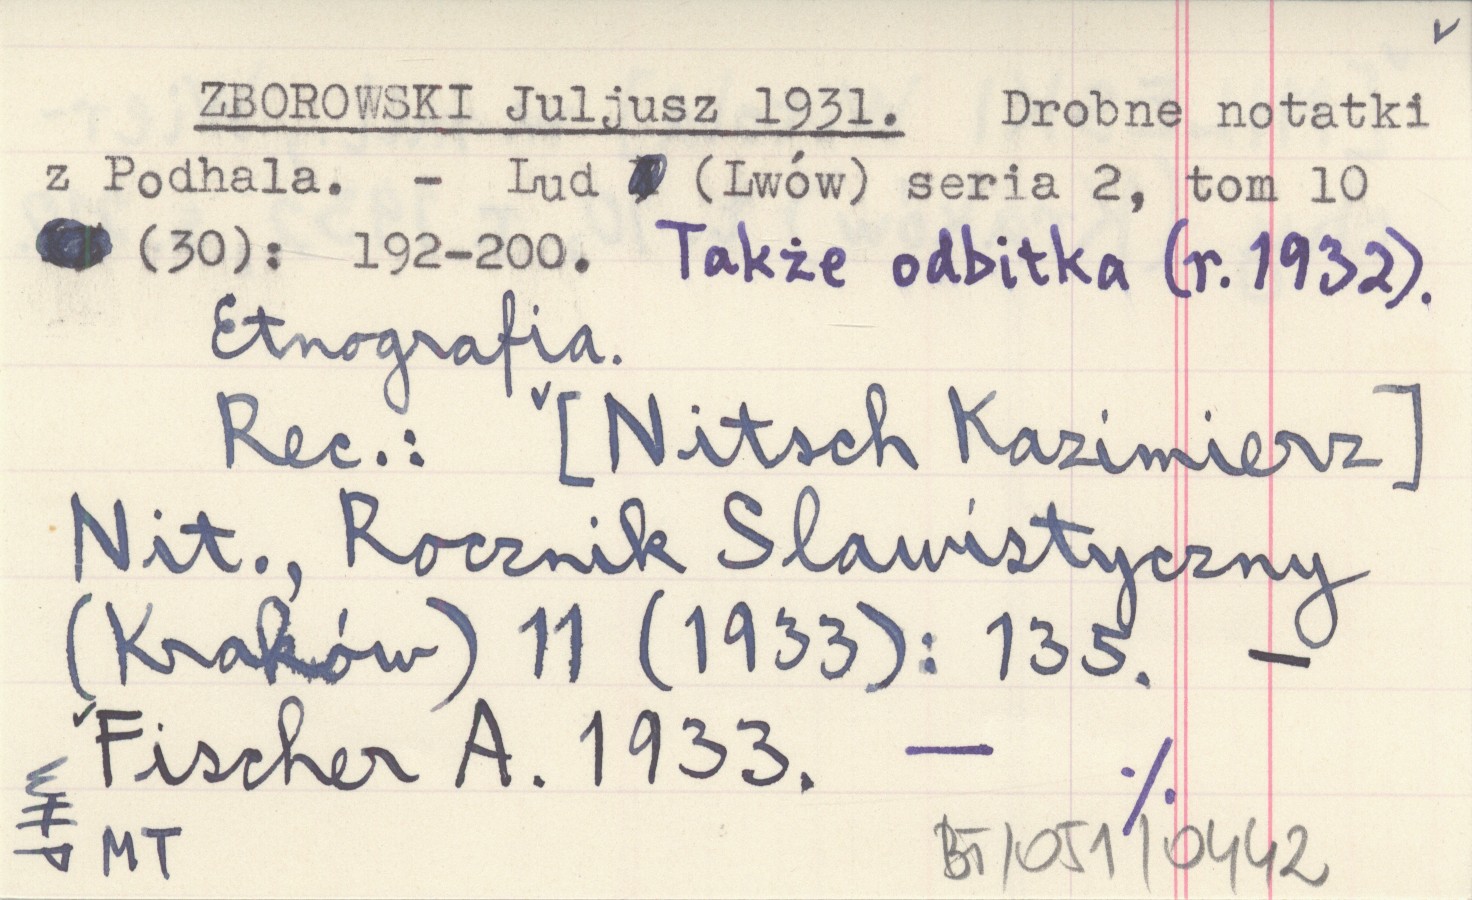 ZBOROWSKI Juljusz 1931. Drobne notatki
z Podhala. - Lud (Lwów) seria 2, tom 10
(30): 192-200. Także odbitka (r. 1932).
Etnografia.
Rec.: [Nitsch Kazimierz]
Nit., Rocznik Slawistyczny
(Kraków) 11 (1933): 135. —
Fischer A. 1933. — ./.
MT
BT/051/0442